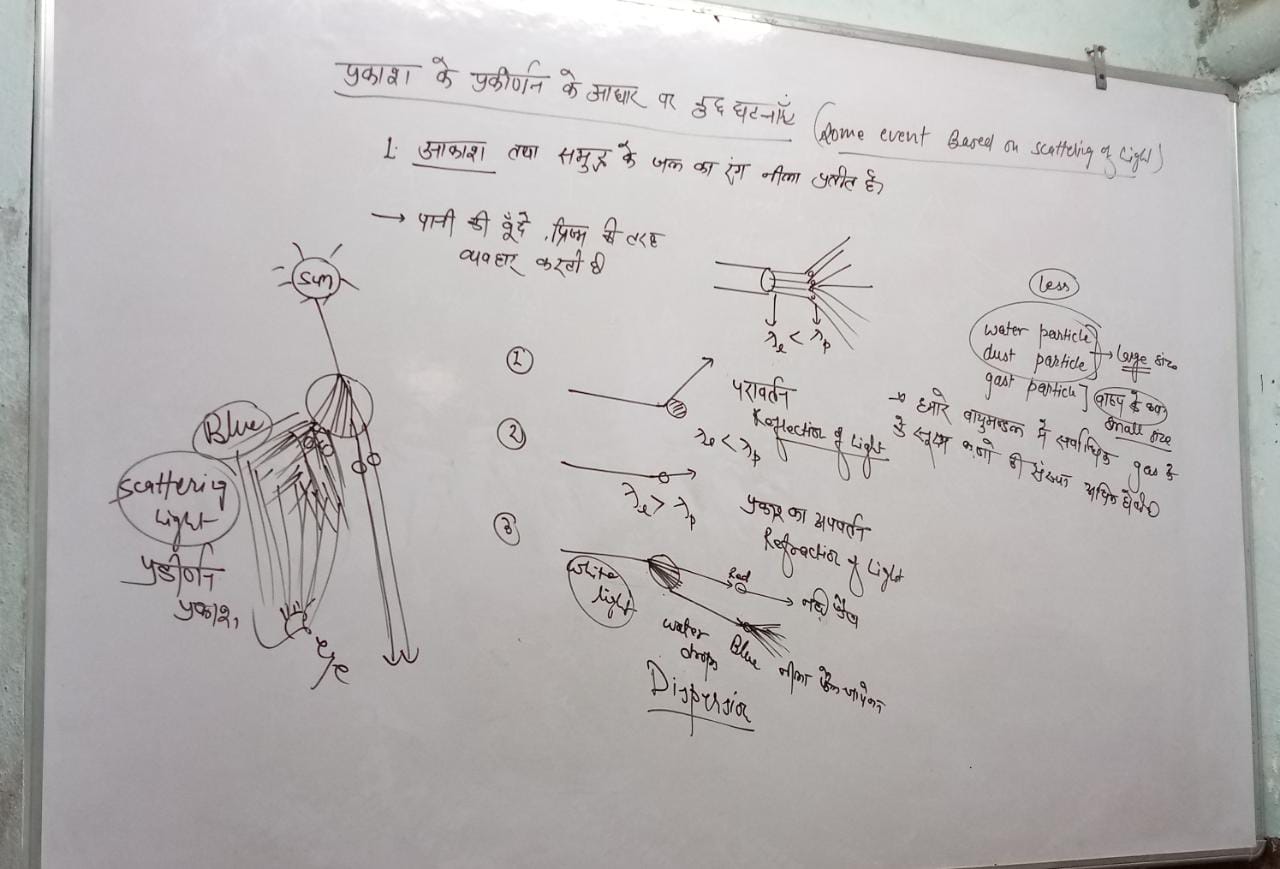 प्रकाश के प्रकीर्णन के आधार पर कुछ घटनाएँ (Some event Based on scattering of Light)
1. आकाश तथा समुद्र के जल का रंग नीला प्रतीत है
→ पानी की बूँदे प्रिज्म की तरह
व्यवहार करती है
Sun
Blue
Scattering
Light
प्रकीर्णन
प्रकाश
eye
λe < λp
①
परावर्तन
Reflection of Light
λe < λp
②
λe > λp
प्रकाश का अपवर्तन
Refraction of Light
③
White
light
Red
नही फैला
water
drops
Blue नीला फैल
Dispersion
less
water particle
dust particle → large size
gast particle]
small size
→ हमारे वायुमण्डल में सर्वाधिक gas के
सूक्ष्म कणो की संख्या अधिक होती है